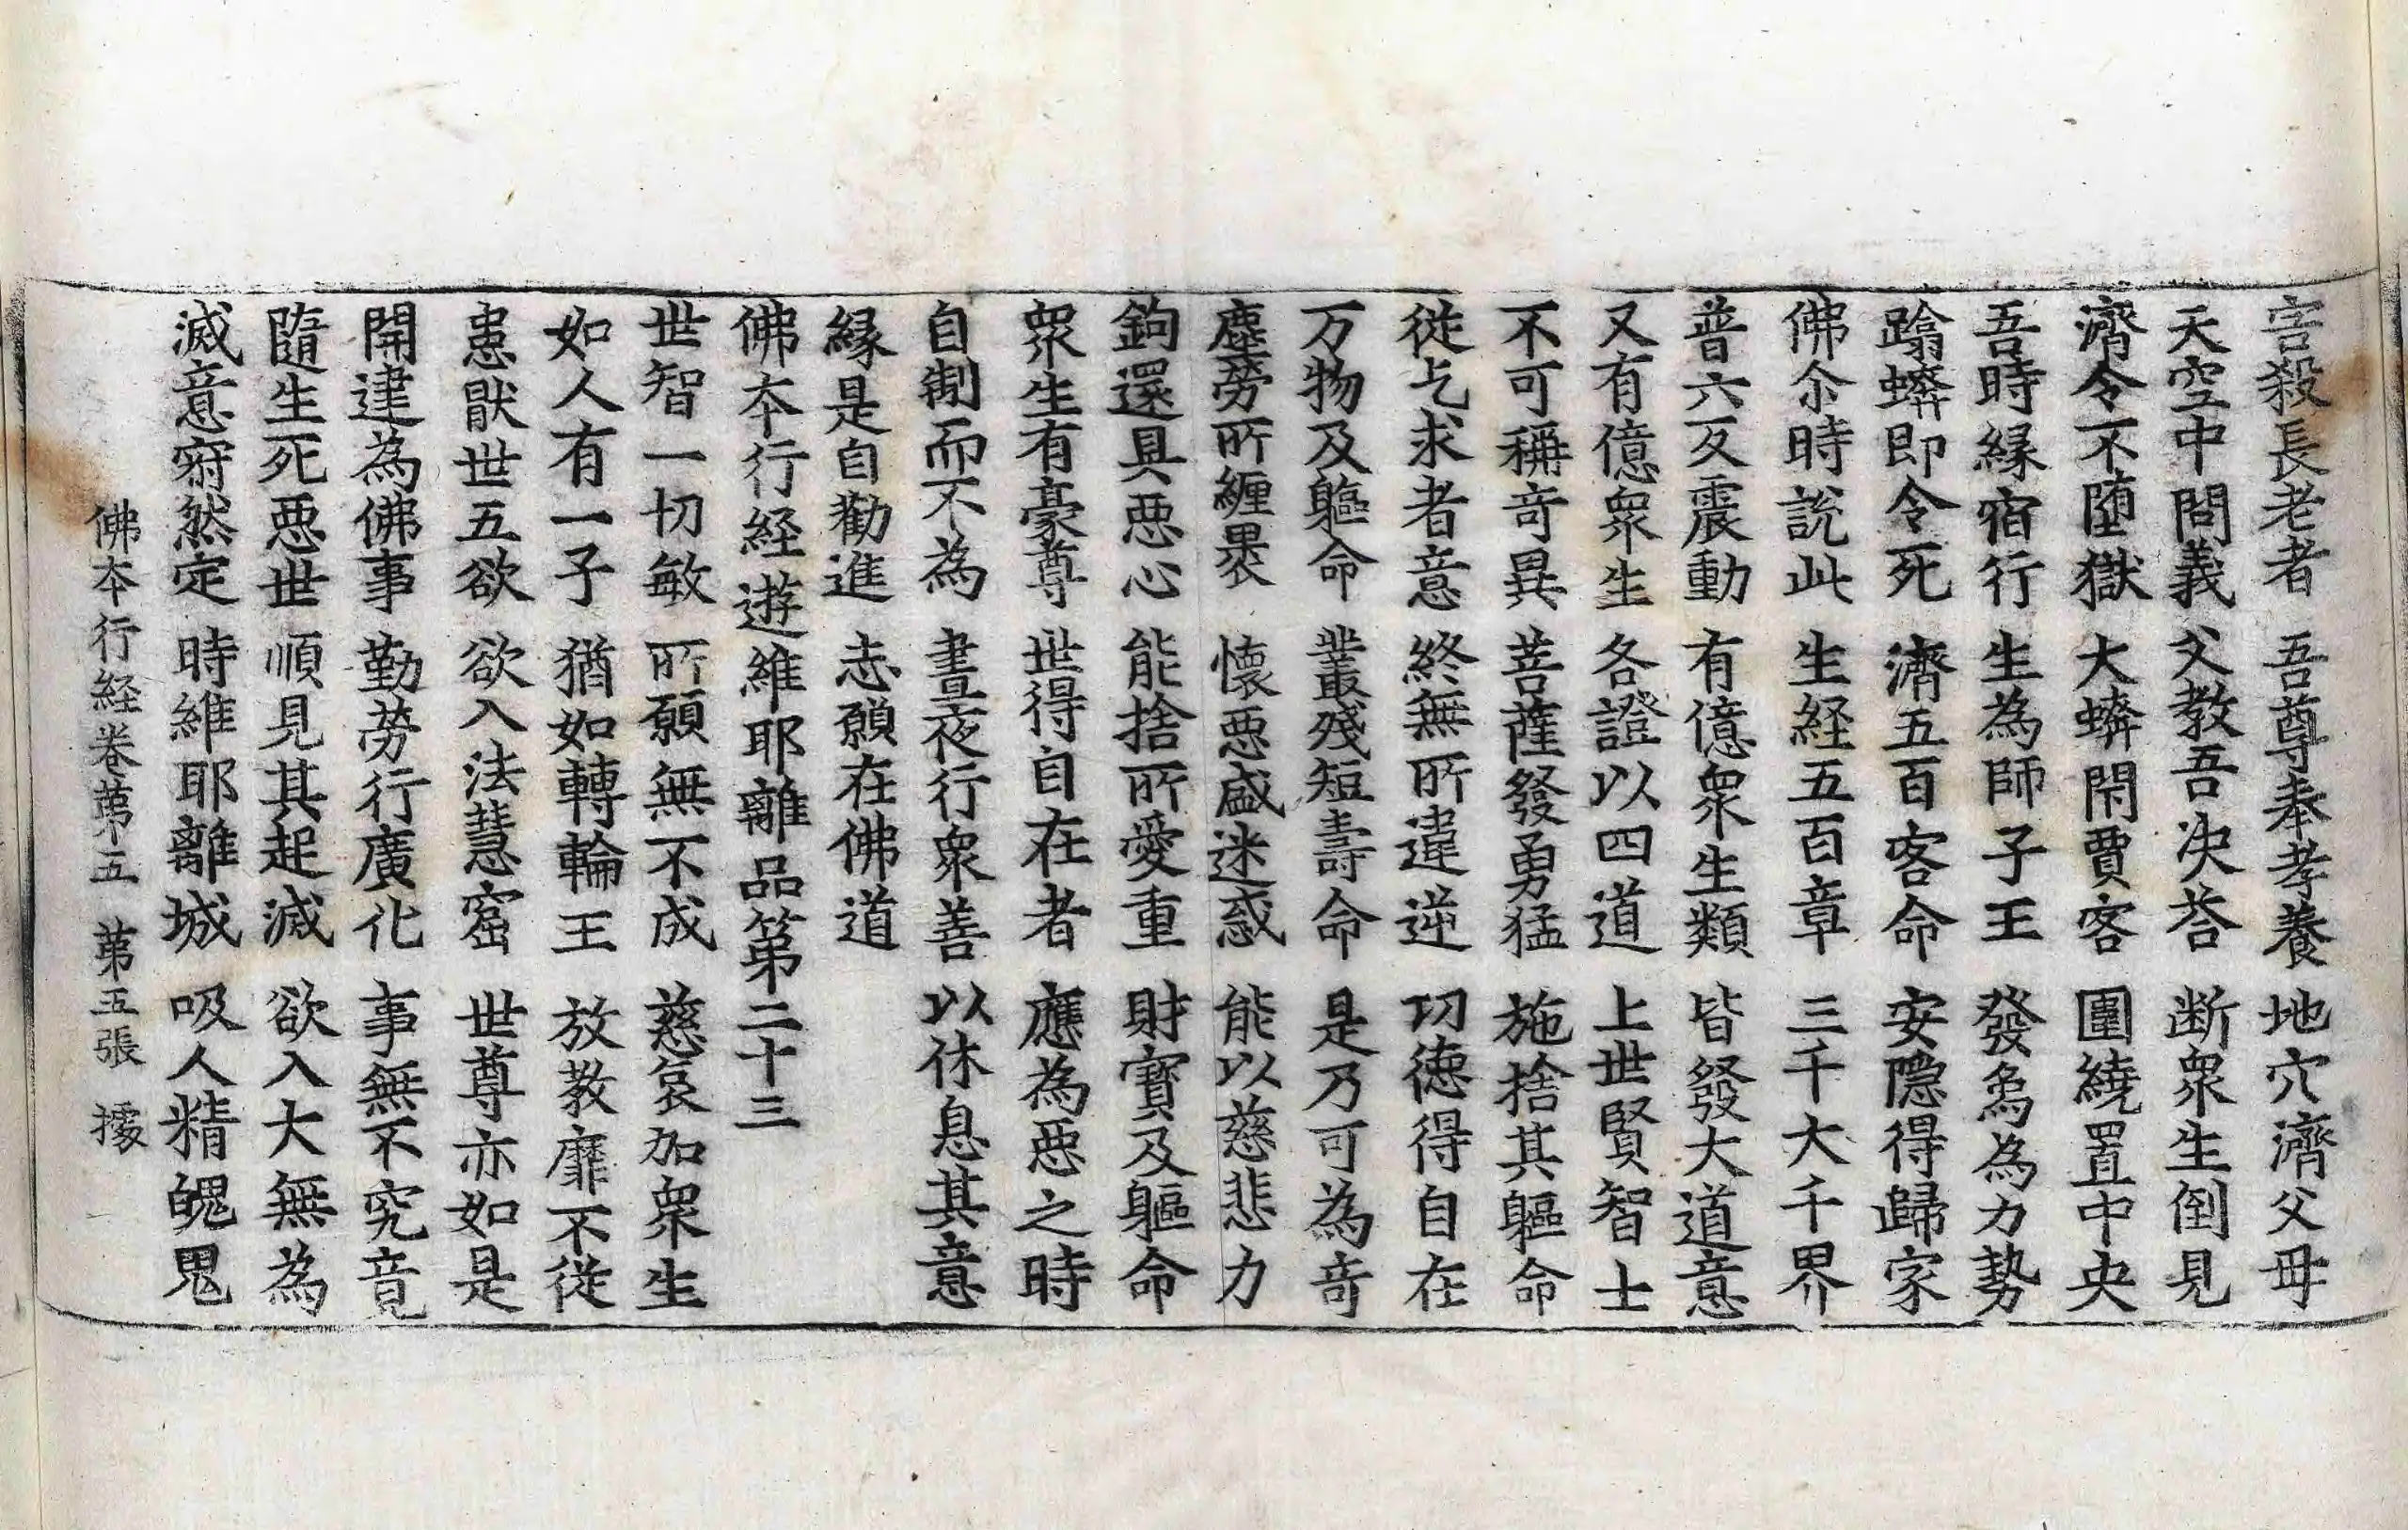 害殺長老者 吾尊奉孝養 地穴濟父母
天空中問義 父教吾決荅 断衆生倒見
濟令不墮獄 大蟒閇賈客 圍繞置中央
吾時縁宿行 生為師子王 發為為力勢
蹹蟒即令死 濟五百客命 安隠得歸家
佛尒時說此 生経五百章 三千大千界
普六反震動 有億衆生類 皆發大道意
又有億衆生 各證以四道 上世賢智士
不可稱竒異 菩薩發勇猛 施捨其軀命
從乞求者意 終無所違逆 功徳得自在
万物及軀命 叢殘短壽命 是乃可為竒
塵勞所纏褁 懷惡盛迷惑 能以慈悲力
鉤還具惡心 能捨所愛重 財寶及軀命
衆生有豪尊 世得自在者 應為惡之時
自制而不為 晝夜行衆善 以休息其意
縁是自勸進 志願在佛道
佛本行経遊維耶離品第二十三
世智一切敏 所願無不成 慈哀加衆生
如人有一子 猶如轉輪王 放教靡不從
患猒世五欲 欲入法慧窟 世尊亦如是
開建為佛事 勤勞行廣化 事無不究竟
隨生死惡世 順見其起滅 欲入大無為
滅意寂然定 時維耶離城 吸人精魄鬼
佛本行経卷第五 第五張 據